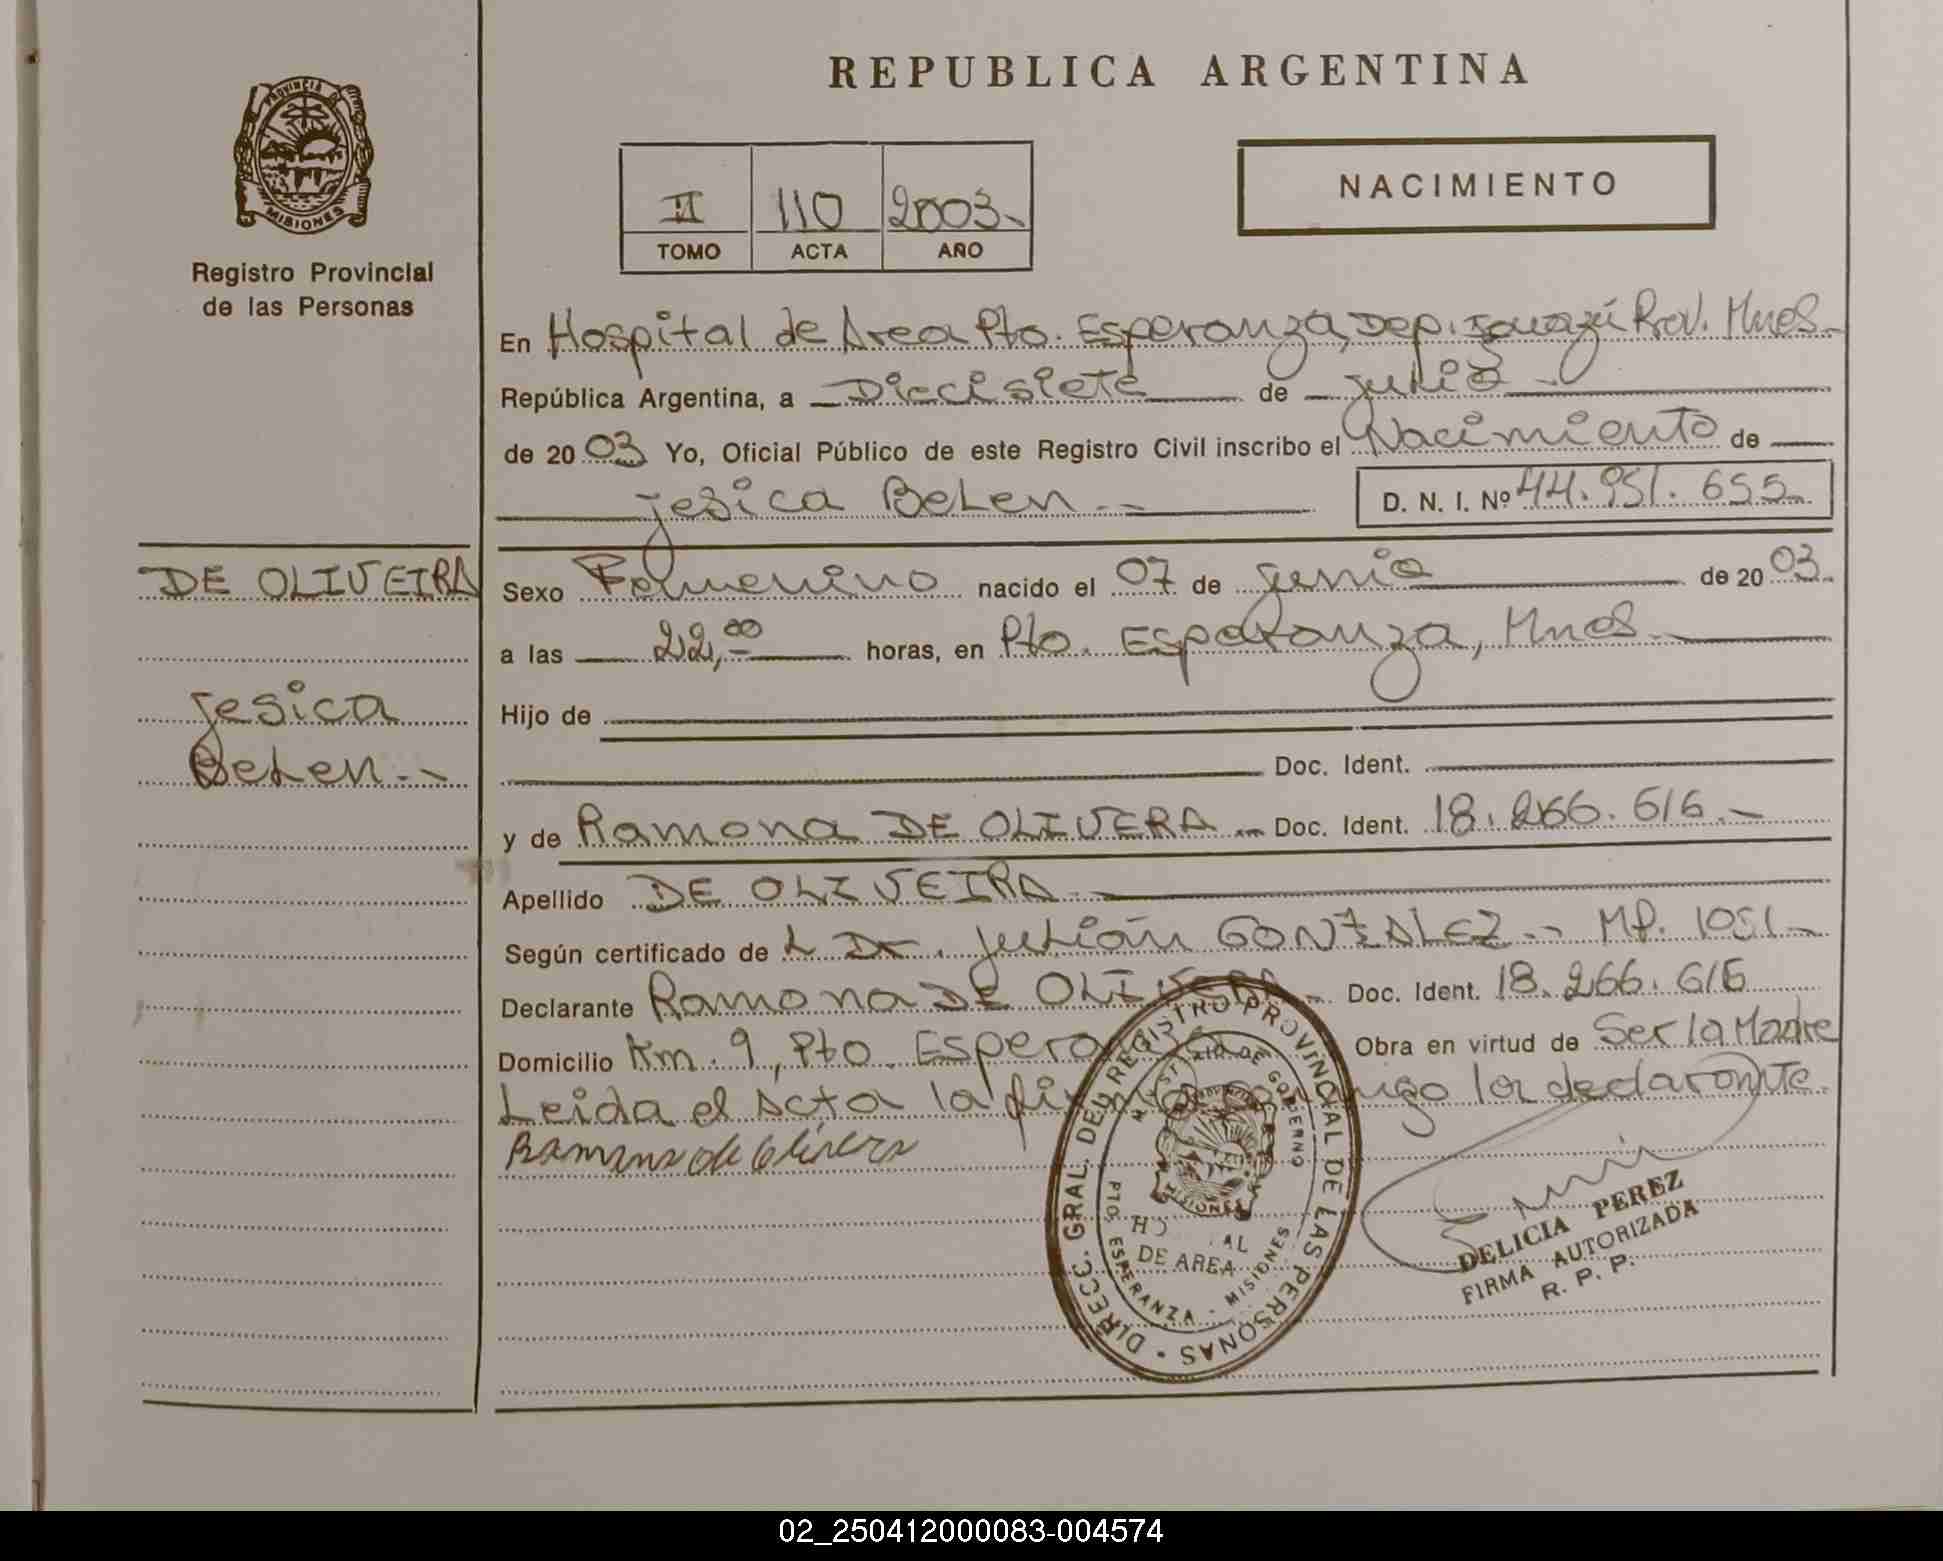 REPUBLICA ARGENTINA
PROVINCIA DE
MISIONES
Registro Provincial
de las Personas
II 110 2003.
TOMO ACTA AÑO
NACIMIENTO
En Hospital de Area Pto. Esperanza, Dep. Iguazú Prov. Mnes.
República Argentina, a Diecisiete de junio
de 20 03 Yo, Oficial Público de este Registro Civil inscribo el Nacimiento de
Jesica Belen
D. N. I. Nº 44.951.655
DE OLIVEIRA
Jesica
Belen
Sexo Femenino nacido el 07 de junio de 20 03
a las 22,00 horas, en Pto. Esperanza, Mnes.
Hijo de
Doc. Ident.
y de Ramona DE OLIVERA Doc. Ident. 18.266.616.
Apellido DE OLIVEIRA
Según certificado de L Dr. Julián GONZALEZ MP. 1051
Declarante Ramona DE OLIVERA Doc. Ident. 18.266.616
Domicilio Km. 9, Pto. Esperanza Obra en virtud de Ser la Madre
Leida el Acta la firma conmigo la declarante.
Ramona de Olivera
DIRECC. GRAL. DEL REGISTRO PROVINCIAL DE LAS PERSONAS
MINISTERIO DE GOBIERNO
MISIONES
DE AREA
PTO. ESPERANZA - MISIONES
DELICIA PEREZ
FIRMA AUTORIZADA
R. P. P.
02_250412000083-004574